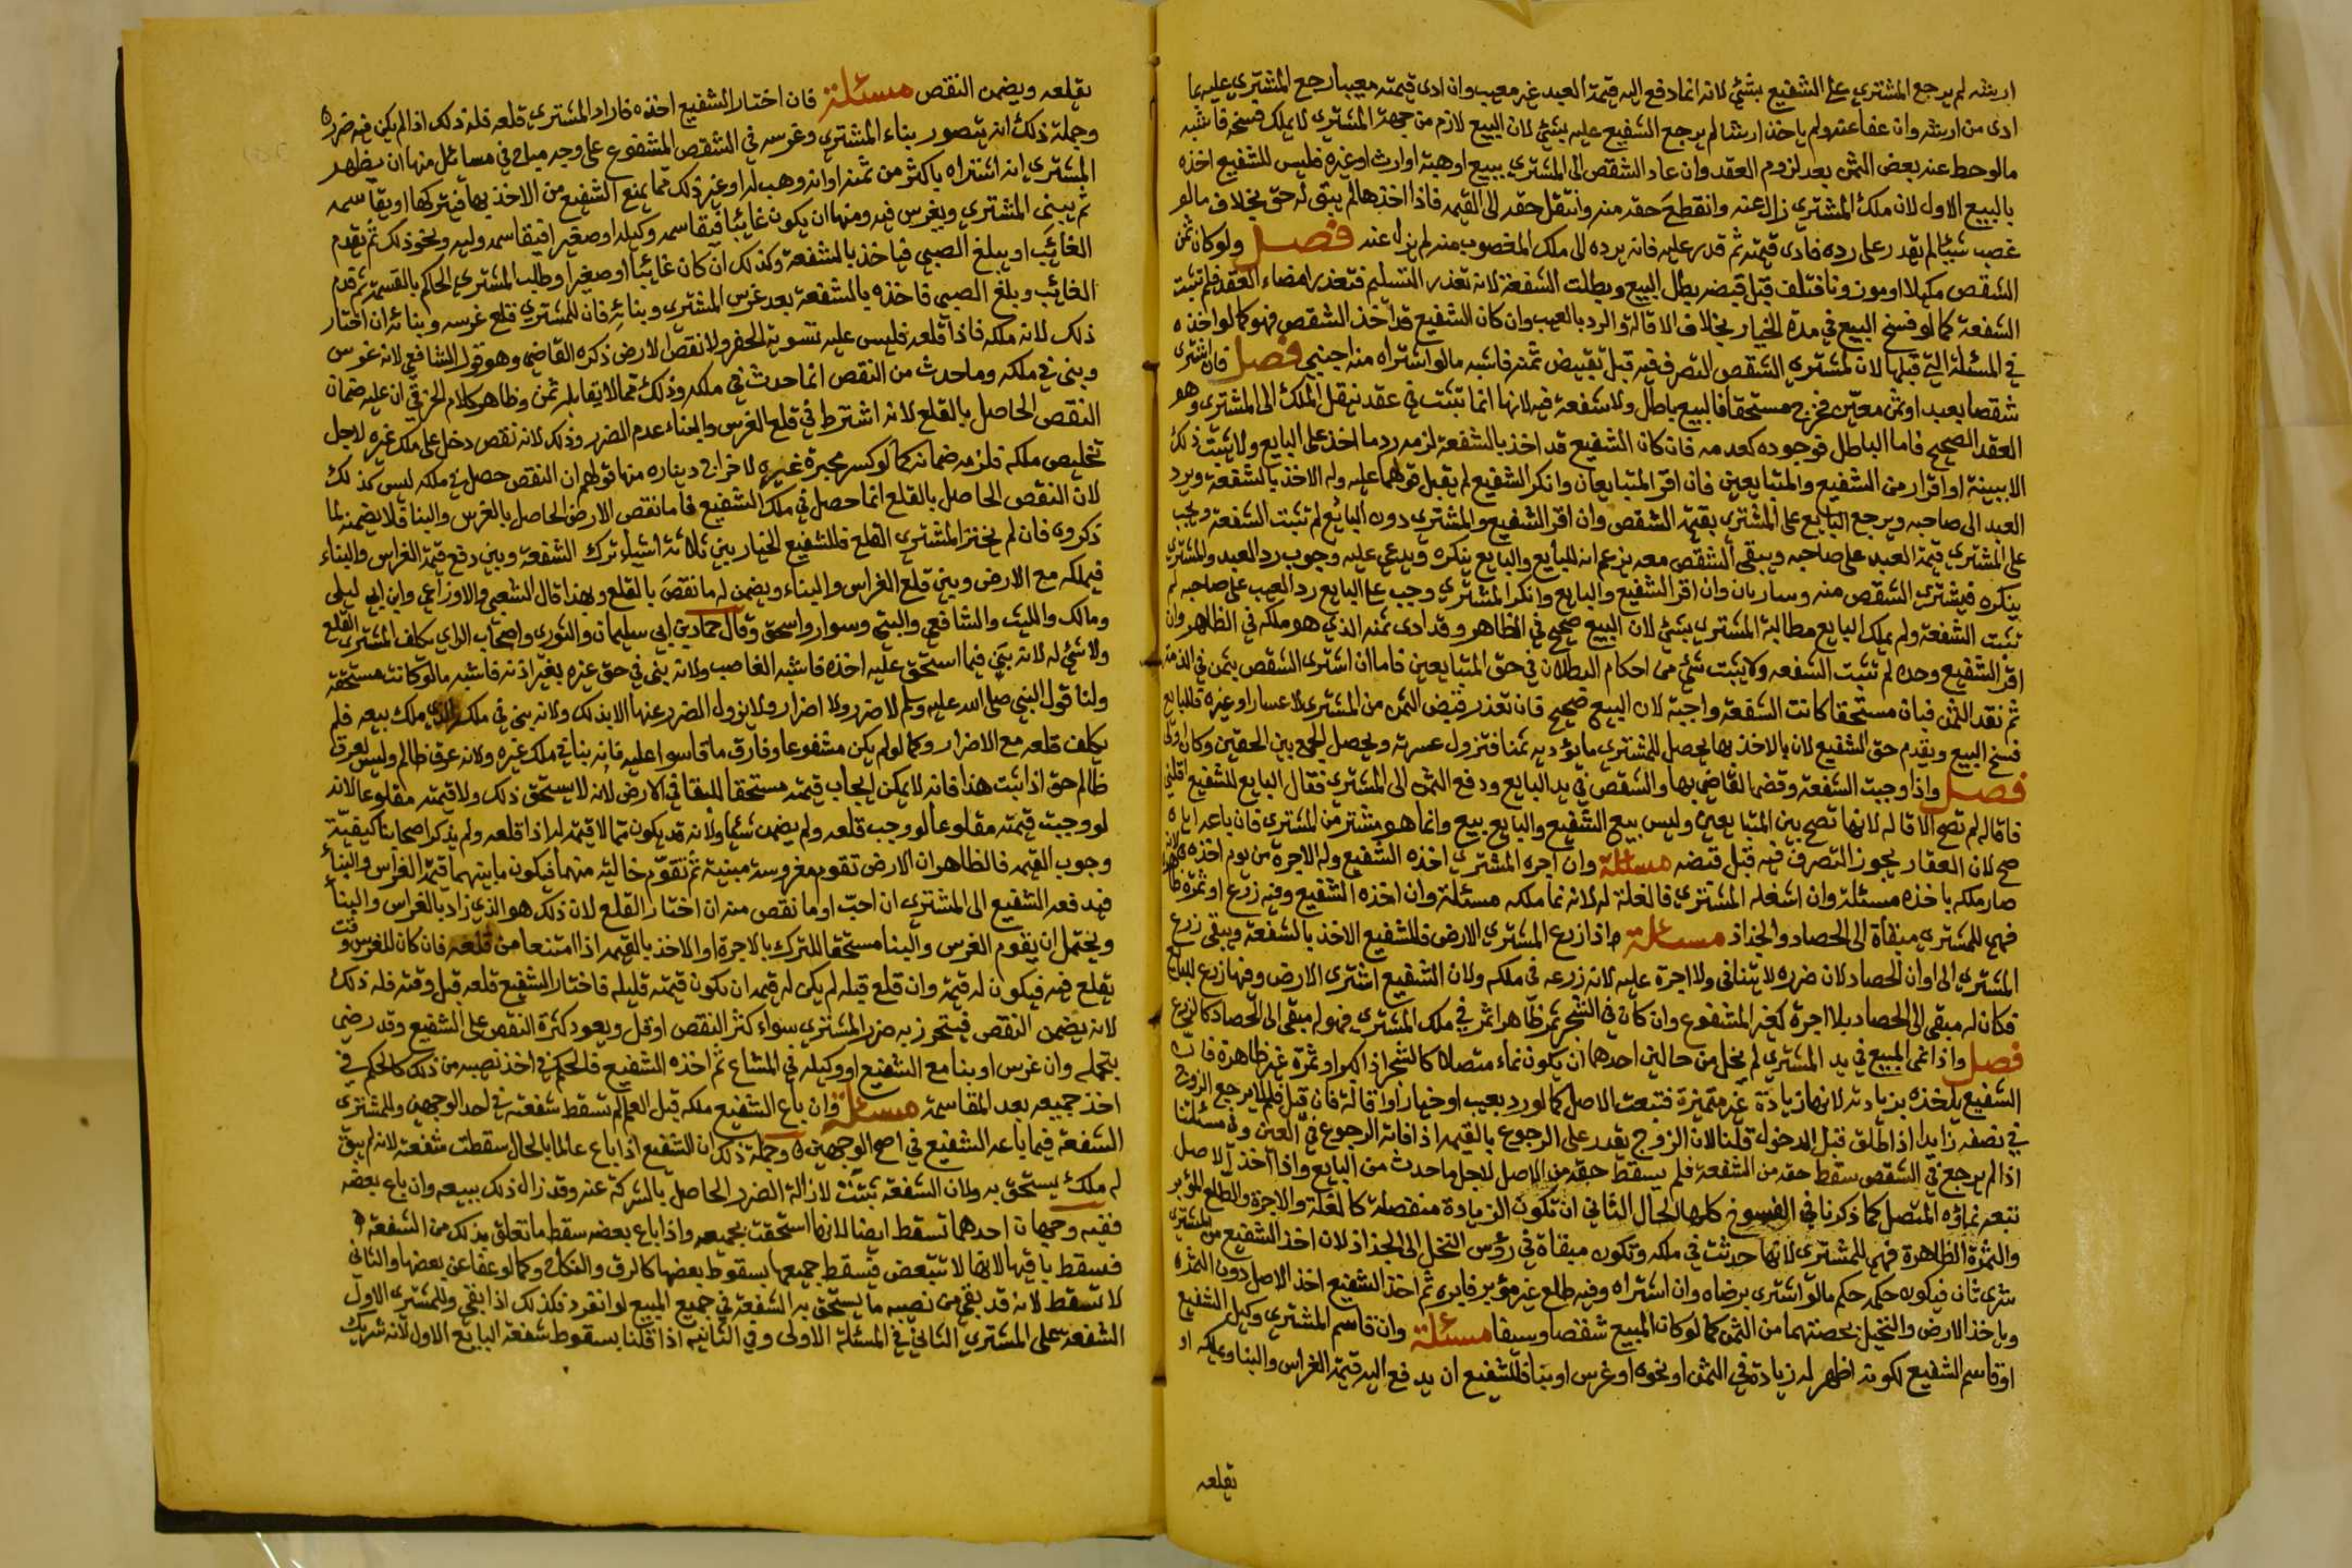 ارشه لم يرجع المشتري على الشفيع بشئ لانه انما دفع اليه قيمة العبد غير معيب وان ادى قيمته معيبا رجع المشتري عليه بما
ادى من ارشه وان عفا عنه ولم ياخذ ارشا لم يرجع الشفيع عليه بشئ لان البيع لازم من جهة المشتري لا يملك فسخه فاشبه
مالو حط عنه بعض الثمن بعد لزوم العقد وان عاد الشقص الى المشتري ببيع او هبة او ارث او غيره فليس للشفيع اخذه
بالبيع الاول لان ملك المشتري زال عنه وانقطع حقه منه وانتقل حقه الى القيمه فاذا اخذها لم يبق له حق بخلاف مالو
غصب شيئا لم يقدر على رده فادى قيمته ثم قدر عليه فانه يرده لان ملك المغصوب منه لم يزل عنه فصل ولو كان ثمن
الشقص مكيلا او موزونا فتلف قبل قبضه بطل البيع وبطلت الشفعة لانه تعذر التسليم فتعذر امضاء العقد فلم تثبت
الشفعة كما لو فسخ البيع في مدة الخيار بخلاف الاقالة والرد بالعيب وان كان الشفيع قد اخذ الشقص فهو كما لو اخذه
في المسئلة التي قبلها لان لمشتري الشقص التصرف فيه قبل تقبيض ثمنه فاشبه مالو اشتراه منه اجنبي فصل فان اشترى
شقصا بعبد او ثمن معين فخرج مستحقا فالبيع باطل ولا شفعة فيه لانها انما تثبت في عقد ينقل الملك الى المشتري وهو
العقد الصحيح فاما الباطل فوجوده كعدمه فان كان الشفيع قد اخذ بالشفعة لزمه رد ما اخذ على البايع ولا يثبت ذلك
الا ببينة او اقرار من الشفيع والمتبايعين فان اقر المتبايعان وانكر الشفيع لم يقبل قولهما عليه وله الاخذ بالشفعة ويرد
العبد الى صاحبه ويرجع البايع على المشتري بقيمة الشقص وان اقر الشفيع والمشتري دون البايع لم تثبت الشفعة ويجب
على المشتري قيمة العبد على صاحبه ويبقى الشقص معه يزعم انه للبايع والبايع ينكره ويدعي عليه وجوب رد العبد والمشتري
ينكره فيشتري الشقص منه ويتباريان وان اقر الشفيع والبايع وانكر المشتري وجب على البايع رد العبد على صاحبه ولم
تثبت الشفعة ولم يملك البايع مطالبة المشتري بشئ لان البيع صحيح في الظاهر وقد ادى ثمنه الذي هو ملكه في الظاهر وان
اقر الشفيع وحده لم تثبت الشفعه ولا يثبت شئ من احكام البطلان في حق المتبايعين فاما ان اشترى الشقص بثمن في الذمة
ثم نقد الثمن فبان مستحقا كانت الشفعة واجبة لان البيع صحيح فان تعذر قبض الثمن من المشتري لاعسار او غيره فللبايع
فسخ البيع ويقدم حق الشفيع لان بالاخذ بها يحصل للمشتري ما يؤديه ثمنا فتزول عسرته ويحصل الجمع بين الحقين وكان اولى
فصل واذا وجبت الشفعة وقضى القاضي بها والشقص في يد البايع ودفع الثمن الى المشتري فقال البايع للشفيع اقلني
فاقاله لم تصح الاقاله لانها تصح بين المتبايعين وليس بيع الشفيع والبايع بيع وانما هو مشتر من المشتري فان باعه اياه
صح لان العقار يجوز التصرف فيه قبل قبضه مسئلة وان اجره المشتري اخذه الشفيع وله الاجرة من يوم اخذه
صار ملكه باخذه مسئلة وان استغله المشتري فالغلة له لانه نما ملكه مسئلة وان اخذه الشفيع وفيه زرع او ثمرة ظاهرة
فهي للمشتري مبقاة الى الحصاد والجذاذ مسئلة اذا زرع المشتري الارض فللشفيع الاخذ بالشفعة ويبقى زرع
المشتري الى اوان الحصاد لان ضرره لا يتنافى ولا اجرة عليه لانه زرعه في ملكه ولان الشفيع اشترى الارض وفيها زرع للبايع
فكان له مبقى الى الحصاد بلا اجرة كغير المشفوع وان كان في الشجر ثمر ظاهر اثمر في ملك المشتري فهو له مبقى الى الحصاد كالزرع
فصل واذا نمى المبيع في يد المشتري لم يخل من حالين احدهما ان يكون نماء متصلا كالشجر اذا كبر او ثمرة غير ظاهرة فان
الشفيع ياخذه بزيادته لانها زيادة غير متميزة فتبعت الاصل كما لو رد بعيب او خيار او اقالة فان قيل فلم لا يرجع الزوج
في نصفه زايدا اذا طلق قبل الدخول قلنا لان الزوج يقدر على الرجوع بالقيمه اذا فاته الرجوع في العين وفي مسئلتنا
اذا لم يرجع في الشقص سقط حقه من الشفعة فلم يسقط حقه من الاصل لاجل ما حدث من البايع واذا اخذ الاصل
تبعه نماؤه المتصل كما ذكرنا في الفسوخ كلها الحال الثاني ان تكون الزيادة منفصلة كالغلة والاجرة والطلع المؤبر
والثمرة الظاهرة فهي للمشتري لانها حدثت في ملكه وتكون مبقاة في رؤس النخل الى الجذاذ لان اخذ الشفيع من المشتري
شرى ثان فيكون حكمه حكم مالو اشترى برضاه وان اشتراه وفيه طلع غير مؤبر فابره ثم اخذ الشفيع اخذ الاصل دون الثمره
وياخذ الارض والنخيل بحصتهما من الثمن كما لو كان المبيع شقصا وسيفا مسئلة وان قاسم المشتري وكيل الشفيع
او قاسم الشفيع لكونه اظهر له زيادة في الثمن او نحوه وغرس او بنا فللشفيع ان يدفع اليه قيمة الغراس والبنا ويملكه او
يقلعه
يقلعه ويضمن النقص مسئلة فان اختار الشفيع اخذه فاراد المشتري قلعه فله ذلك اذا لم يكن فيه ضرر
وجملة ذلك انه يتصور بناء المشتري وغرسه في الشقص المشفوع على وجه مباح في مسائل منها ان يظهر
المشتري انه اشتراه باكثر من ثمنه او انه وهب له او غير ذلك مما يمنع الشفيع من الاخذ بها فيتركها او يقاسمه
ثم يبنى المشتري ويغرس فيه ومنها ان يكون غائبا فيقاسمه وكيله او صغيرا فيقاسمه وليه ونحو ذلك ثم يقدم
الغائب او يبلغ الصبي فياخذ بالشفعة وكذلك ان كان غائبا او صغيرا وطلب المشتري الحاكم بالقسمة ثم قدم
الغائب وبلغ الصبي فاخذه بالشفعة بعد غرس المشتري وبنائه فان للمشتري قلع غرسه وبنائه ان اختار
ذلك لانه ملكه فاذا قلعه فليس عليه تسوية الحفر ولا نقص الارض ذكره القاضي وهو قول الشافعي لانه غرس
وبنى في ملكه وما حدث من النقص انما حدث في ملكه وذلك مما لا يقابله ثمن وظاهر كلام الخرقي ان عليه ضمان
النقص الحاصل بالقلع لانه اشترط في قلع الغرس والبناء عدم الضرر وذلك لانه نقص دخل على ملك غيره لاجل
تخليص ملكه فلزمه ضمانه كما لو كسر محبرة غيره لاخراج ديناره منها قولهم ان النقص حصل في ملكه ليس كذلك
لان النقص الحاصل بالقلع انما حصل في ملك الشفيع فاما نقص الارض الحاصل بالغرس والبنا فلا يضمنه لما
ذكروه فان لم يختر المشتري القلع فللشفيع الخيار بين ثلاثة اشياء ترك الشفعة وبين دفع قيمة الغراس والبناء
فيملكه مع الارض وبين قلع الغراس والبناء ويضمن له ما نقص بالقلع وبهذا قال الشعبي والاوزاعي وابن ابي ليلى
ومالك والليث والشافعي والبتي وسوار واسحق وقال حماد بن ابي سليمان والثوري واصحاب الراي يكلف المشتري القلع
ولا شئ له لانه بنى فيما استحق عليه اخذه فاشبه الغاصب ولانه بنى في حق غيره بغير اذنه فاشبه مالو كانت مستحقة
ولنا قول النبي صلى الله عليه وسلم لا ضرر ولا اضرار ولا يزول الضرر عنهما الا بذلك ولانه بنى في ملكه الذي ملك بيعه فلم
يكلف قلعه مع الاضرار وكما لو لم يكن مشفوعا وفارق ما قاسوا عليه فانه بنا في ملك غيره ولانه عرق ظالم وليس لعرق
ظالم حق اذا ثبت هذا فانه لا يمكن ايجاب قيمته مستحقا للبقا في الارض لانه لا يستحق ذلك ولا قيمته مقلوعا لانه
لو وجبت قيمته مقلوعا لوجب قلعه ولم يضمن شيئا ولانه قد يكون مما لا قيمة له اذا قلعه ولم يذكر اصحابنا كيفية
وجوب القيمه فالظاهر ان الارض تقوم مغروسة مبنية ثم تقوم خالية منهما فيكون ما بينهما قيمة الغراس والبناء
فيدفعه الشفيع الى المشتري ان احب او ما نقص منه ان اختار القلع لان ذلك هو الذي زاد بالغراس والبناء
ويحتمل ان يقوم الغرس والبنا مستحقا للترك بالاجرة او للاخذ بالقيمه اذا امتنعا من قلعه فان كان للغرس وقت
يقلع فيه فيكون له قيمة وان قلع قبله لم يكن له قيمه او تكون قيمته قليله فاختار الشفيع قلعه قبل وقته فله ذلك
لانه يضمن النقص فيتحرز به ضرر المشتري سواء كثر النقص او قل ويعود كثرة النقص على الشفيع وقد رضي
بتحمله وان غرس او بنا مع الشفيع او وكيله في المشاع ثم اخذه الشفيع فالحكم في اخذ نصيبه من ذلك كالحكم في
اخذ جميعه بعد المقاسمة مسئلة وان باع الشفيع ملكه قبل العلم لم تسقط شفعته في احد الوجهين وللمشتري
الشفعة فيما باعه الشفيع في اصح الوجهين وجملة ذلك ان الشفيع اذا باع عالما بالحال سقطت شفعته لانه لم يبق
له ملك يستحق به ولان الشفعة تثبت لازالة الضرر الحاصل بالشركة عنه وقد زال ذلك ببيعه وان باع بعضه
ففيه وجهان احدهما تسقط ايضا لانها استحقت بجميعه واذا باع بعضه سقط ما تعلق بذلك من الشفعة
فسقط باقيها لانها لا تتبعض فتسقط جميعها بسقوط بعضها كالرق والنكاح وكما لو عفا عن بعضها والثاني
لا تسقط لانه قد بقي من نصيبه ما يستحق به الشفعة في جميع المبيع لو انفرد فكذلك اذا بقي وللمشتري الاول
الشفعه على المشتري الثاني في المسئلة الاولى وفي الثانيه اذا قلنا بسقوط شفعة البايع الاول لانه شريك